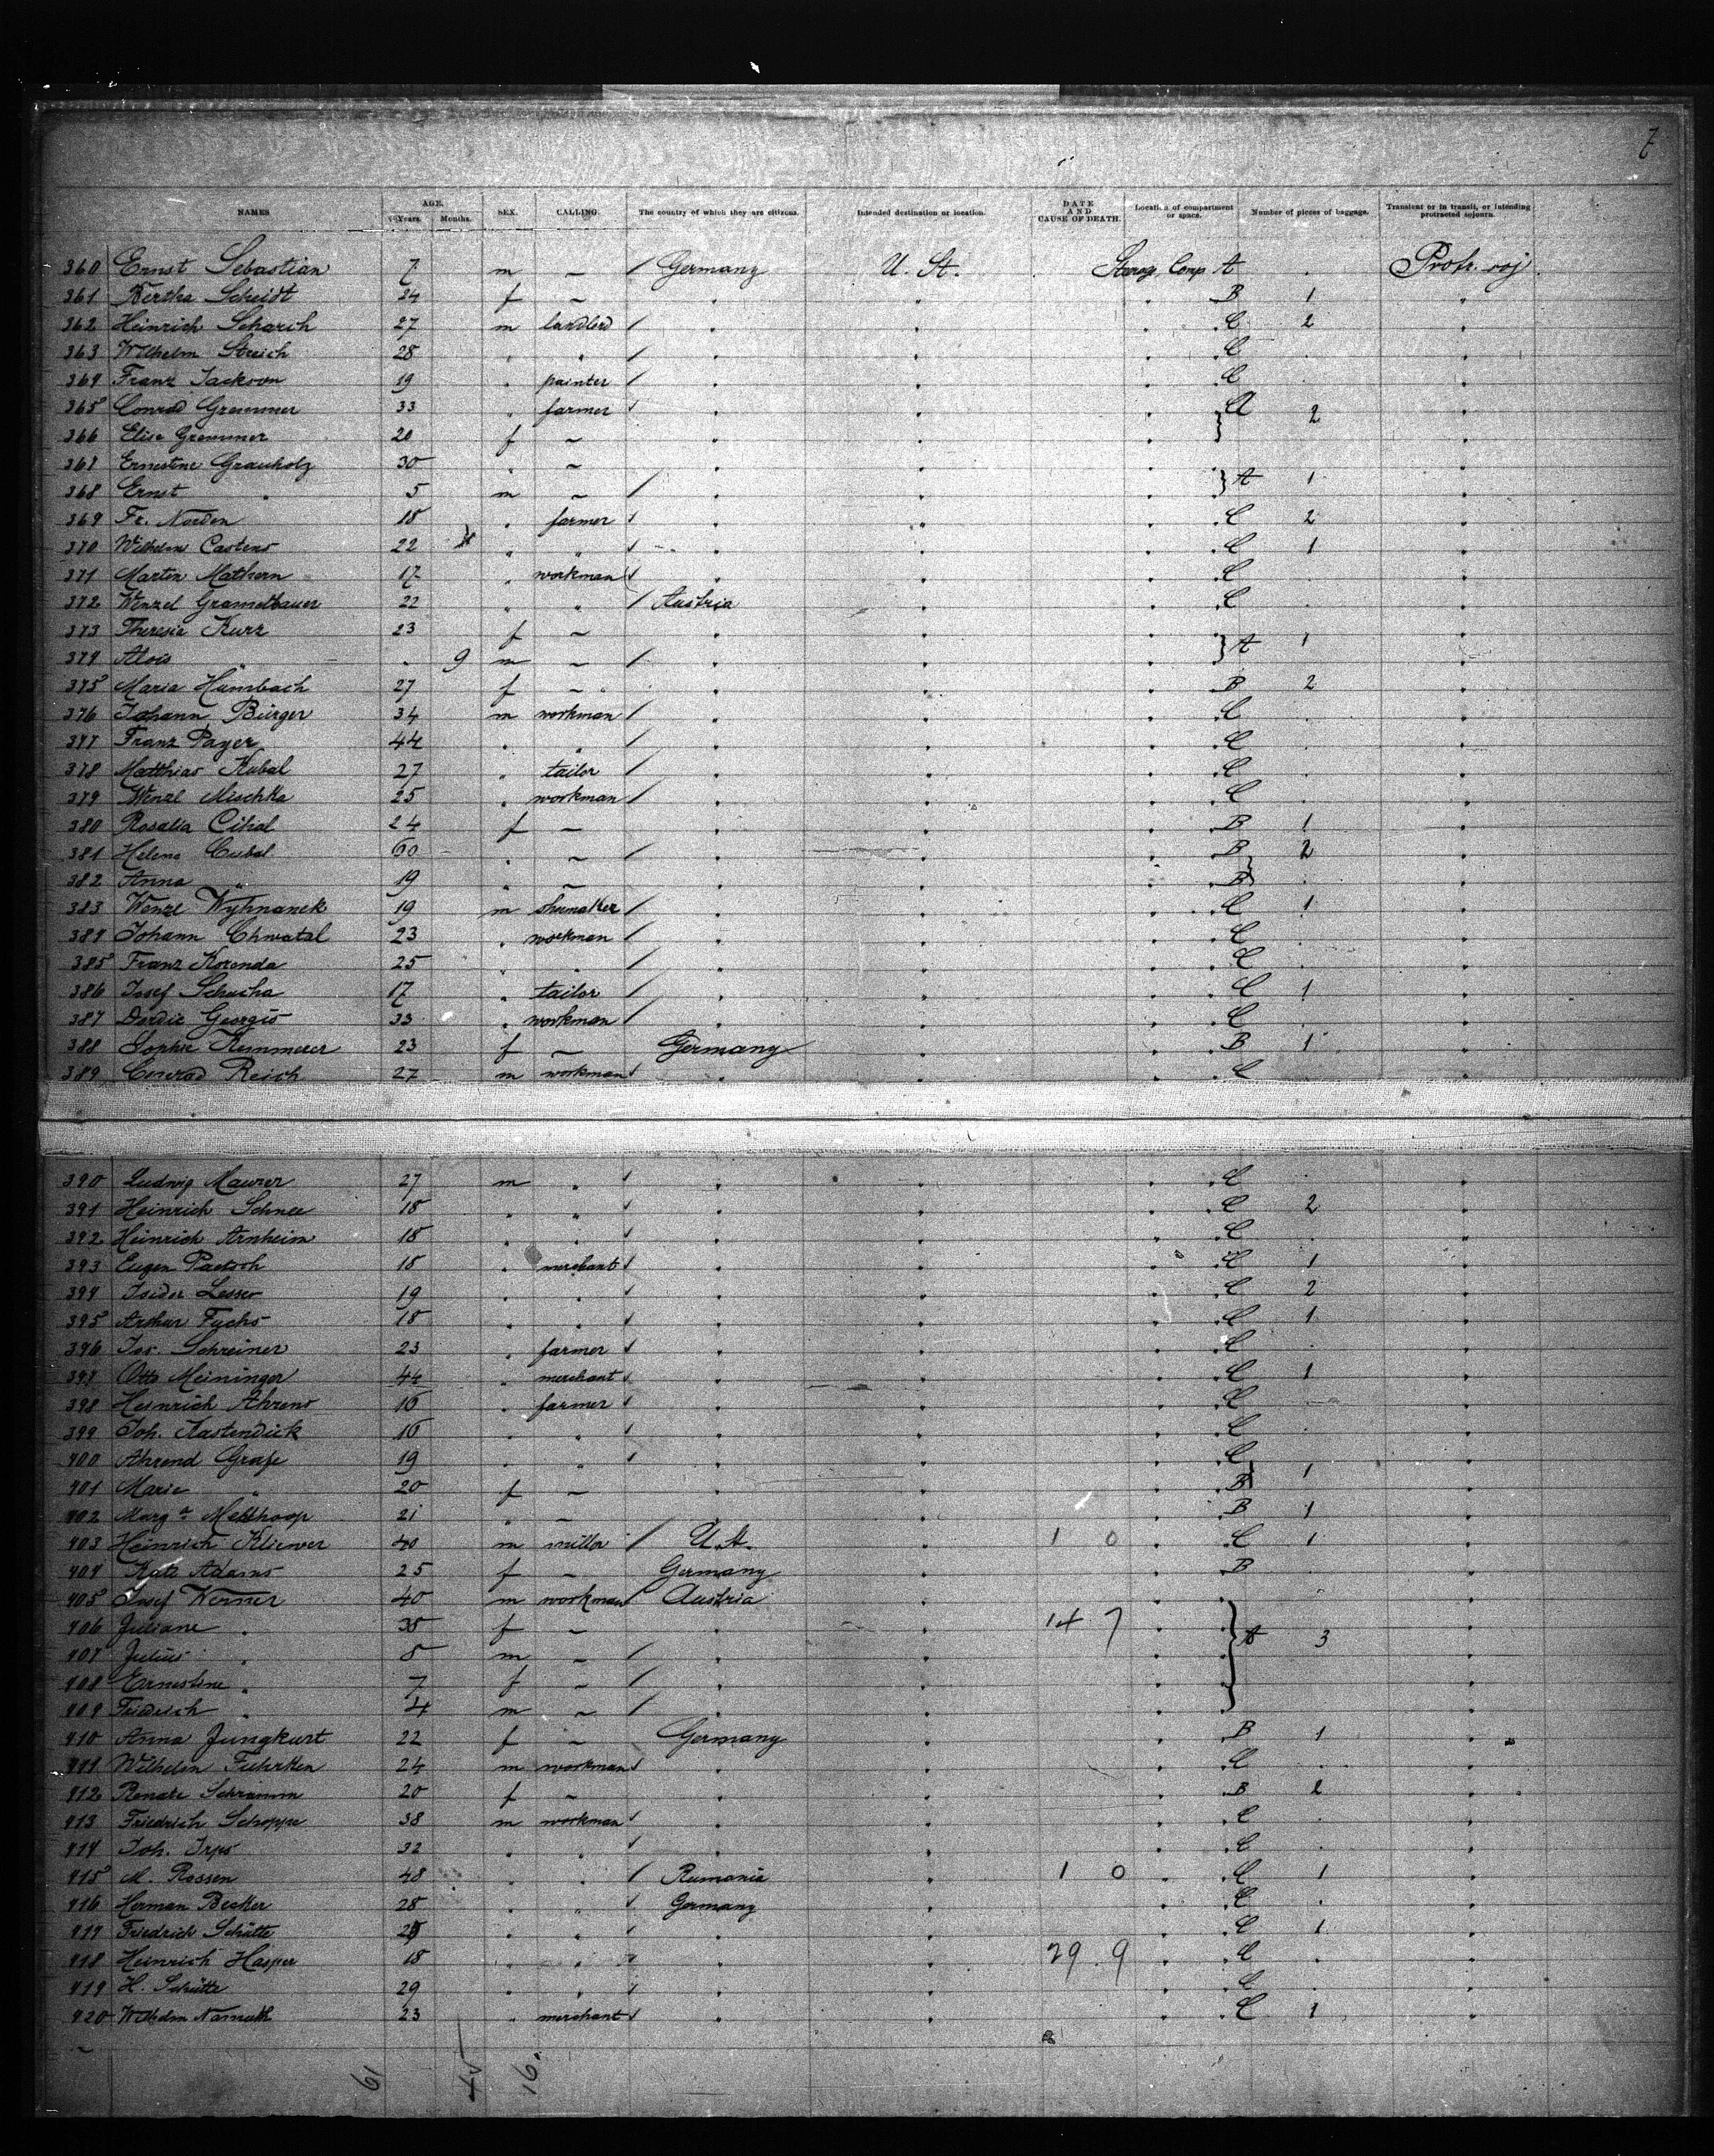 7
NAMES AGE. Years. Months. SEX. CALLING. The country of which they are citizens. Intended destination or location. DATE AND CAUSE OF DEATH. Location of compartment or space. Number of pieces of baggage. Transient or in transit, or intending protracted sojourn.
360 Ernst Sebastian 7 m ~ / Germany U. St. Steerage Comp A . Protr. soj.
361 Bertha Scheidt 24 f ~ " " " B 1 "
362 Heinrich Scharch 27 m landlord / " " " C 2 "
363 Wilhelm Streich 28 " " / " " " C . "
364 Franz Jackson 19 " painter / " " " C . "
365 Conrad Gremmer 33 " farmer " " " A 2 "
366 Elise Gremmer 20 f ~ " " " "
367 Ernestine Grauholz 30 " ~ " " " "
368 Ernst " 5 m ~ / " " " A 1 "
369 Fr. Norden 18 " farmer " " " C 2 "
370 Wilhelm Castens 22 " " " " " C 1 "
371 Martin Mathern 17 " workman " " " C . "
372 Wenzel Gramelbauer 22 " " / Austria " " C . "
373 Theresia Kurz 23 f ~ " " " A 1 "
374 Alois " . 9 m ~ / " " " "
375 Maria Humbach 27 f ~ " " " B 2 "
376 Johann Bürger 34 m workman / " " " C . "
377 Franz Payer 44 " " / " " " C . "
378 Matthias Kubal 27 " tailor / " " " C . "
379 Wenzl Mischka 25 " workman / " " " C . "
380 Rosalia Cihal 24 f ~ " " " B 1 "
381 Helene Cubal 60 " ~ / " " " B 2 "
382 Anna " 19 " ~ " " " B . "
383 Wenzl Wyhnanek 19 m shomaker / " " " C 1 "
384 Johann Chwatal 23 " workman / " " " C . "
385 Franz Korenda 25 " " / " " " C . "
386 Josef Schucha 17 " tailor / " " " C 1 "
387 Dordie Georgis 33 " workman / " " " C . "
388 Sophie Kemmerer 23 f ~ Germany " " B 1 "
389 Conrad Reich 27 m workman " " " C . "
390 Ludwig Maurer 27 m " " " " C . "
391 Heinrich Schnee 18 " " " " " C 2 "
392 Heinrich Arnheim 18 " " " " " C . "
393 Eugen Paetsch 18 " merchant " " " C 1 "
394 Isidor Lesser 19 " " " " " C 2 "
395 Arthur Fuchs 18 " " " " " C 1 "
396 Jos. Schreiner 23 " farmer " " " C . "
397 Otto Meininger 44 " merchant " " " C 1 "
398 Heinrich Ahrens 16 " farmer " " " C . "
399 Joh. Kastendiek 16 " " " " " C . "
400 Ahrend Grafe 19 " " " " " C 1 "
401 Marie " 20 f ~ " " " B "
402 Marg a 21 " ~ " " " B 1 "
403 Heinrich Kliewer 40 m miller / U. St. " 1 0 " C 1 "
404 Kate Adams 25 f ~ Germany " " B . "
405 Josef Werner 40 m workman Austria " " "
406 Juliane " 35 f ~ " " 14 7 " A 3 "
407 Julius " 8 m ~ / " " " "
408 Ernestine " 7 f ~ / " " " "
409 Friedrich " 4 m ~ / " " " "
410 Anna Jungkurt 22 f ~ Germany " " B 1 "
411 Wilhelm Fuhrken 24 m workman " " " C . "
412 Renate Schramm 20 f ~ " " " B 2 "
413 Friedrich Schoppe 38 m workman " " " C . "
414 Joh. Irps 32 " " " " " C . "
415 M. Rossen 48 " " / Rumania " 1 0 " C 1 "
416 Herman Becker 28 " " Germany " " C . "
417 Friedrich Schütte " " " " " C 1 "
418 Heinrich Hasper 18 " " " " 29 9 " C . "
419 H. Schütte 29 " " " " " C . "
420 Wilhelm 23 " merchant " " " C 1 "
61 45 16